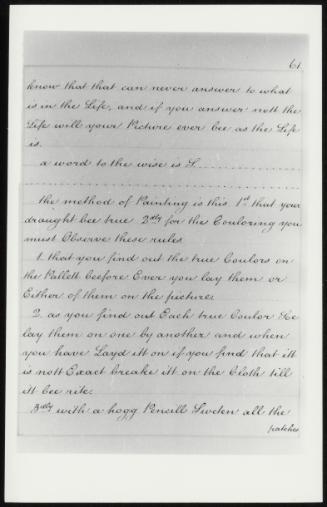 61.
know that that can never answer to what
is in the Life, and if you answer nott the
Life will your Picture ever bee as the Life
is.
a word to the wise is S.
the method of Painting is this. 1st that your
draught bee true. 2ndly for the Couloring you
must Observe these rules.
1. that you find out the true Coulors on
the Pallett beefore Ever you lay them or
Either of them on the picture.
2. as you find out Each true Coulor
lay them on one by another and when
you have Layd itt on if you find that itt
is nott Exact breake itt on the Cloth till
itt bee rite.
3dly with a hogg Pencill Sweeten all the
patches